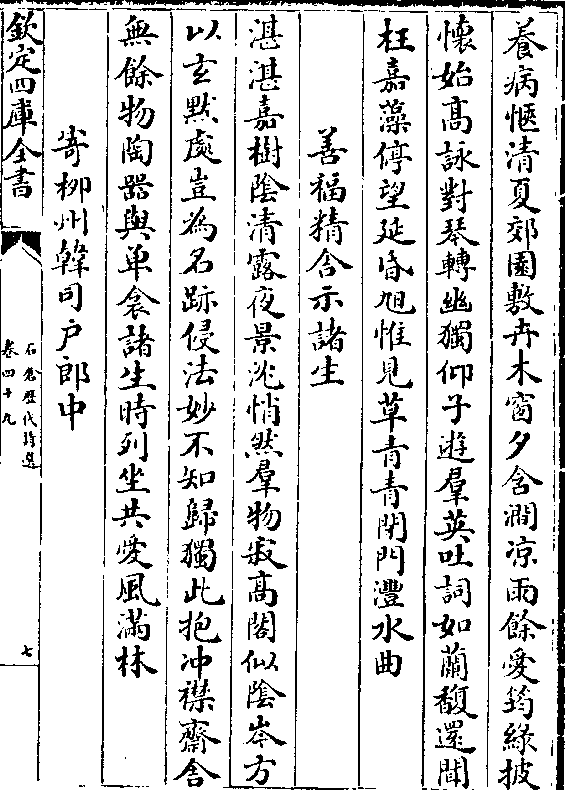 養病愜清夏郊園敷卉木窗夕含澗凉雨餘愛筠緑披
懷始高詠對琴轉幽獨仰子遊羣英吐詞如蘭馥還聞
枉嘉藻停望延昏旭惟見草青青閉門灃水曲
善福精舍示諸生
湛湛嘉樹陰清露夜景沈悄然羣物寂高閣似陰岑方
以玄黙處豈為名跡侵法妙不知歸獨此抱冲襟齋舎
無餘物陶器與单衾諸生時列坐共愛風滿林
寄栁州韓司户郎中
欽定四庫全書
石倉歴代詩選
卷四十九
七